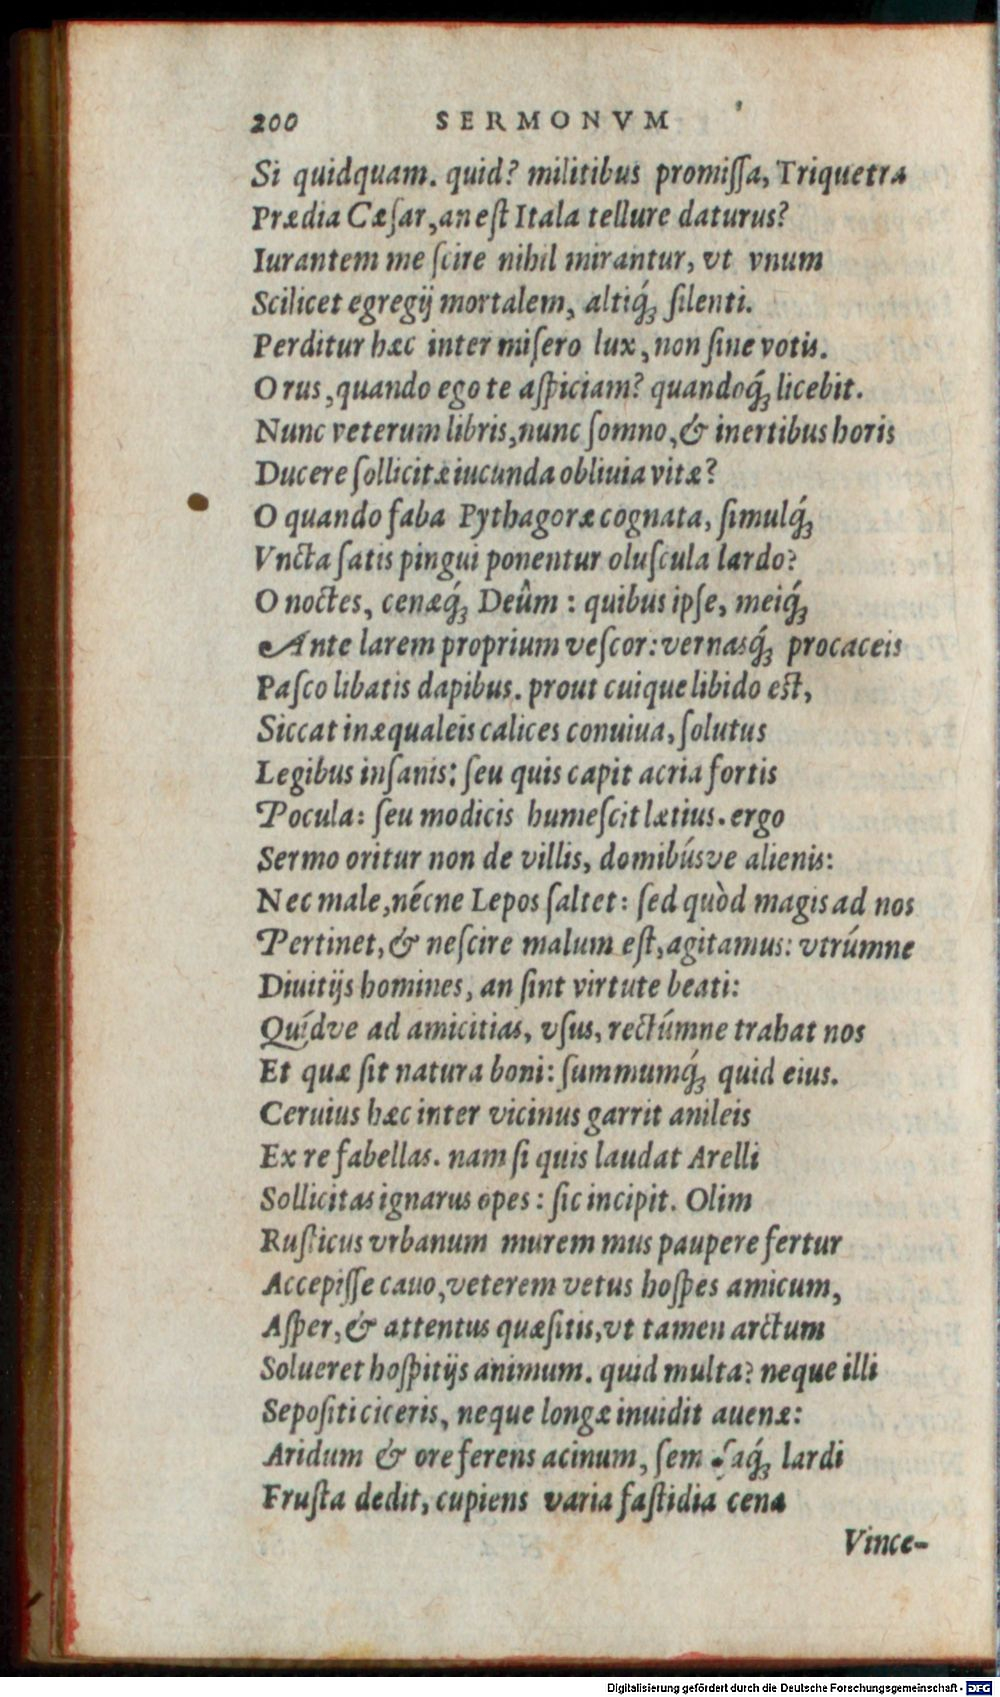 200 SERMONVM
Si quidquam. quid? militibus promiſſa, Triquetra
Prædia Cæſar, an eſt Itala tellure daturus?
Iurantem me ſcire nihil mirantur, vt vnum
Scilicet egregij mortalem, altiq́; ſilenti.
Perditur hæc inter miſero lux, non ſine votis.
O rus, quando ego te aſpiciam? quandoq́; licebit.
Nunc veterum libris, nunc ſomno, & inertibus horis
Ducere ſollicitæ iucunda obliuia vitæ?
O quando faba Pythagoræ cognata, ſimulq́;
Vncta ſatis pingui ponentur oluſcula lardo?
O noctes, cenæq́; Deûm : quibus ipſe, meiq́;
Ante larem proprium veſcor: vernasq́; procaceis
Paſco libatis dapibus. prout cuique libido est,
Siccat inæqualeis calices conuiua, ſolutus
Legibus inſanis: ſeu quis capit acria fortis
Pocula: ſeu modicis humeſcit lætius. ergo
Sermo oritur non de villis, domibúsve alienis:
Nec male, nécne Lepos ſaltet: ſed quòd magis ad nos
Pertinet, & neſcire malum eſt, agitamus: vtrúmne
Diuitijs homines, an ſint virtute beati:
Quídve ad amicitias, vſus, rectúmne trahat nos
Et quæ ſit natura boni: ſummumq́; quid eius.
Ceruius hæc inter vicinus garrit anileis
Ex re fabellas. nam ſi quis laudat Arelli
Sollicitas ignarus opes : ſic incipit. Olim
Ruſticus vrbanum murem mus paupere fertur
Accepiſſe cauo, veterem vetus hoſpes amicum,
Aſper, & attentus quæſitis, vt tamen arctum
Solueret hoſpitijs animum. quid multa? neque illi
Sepoſiti ciceris, neque longæ inuidit auenæ:
Aridum & ore ferens acinum, ſem ſaq́; lardi
Fruſta dedit, cupiens varia faſtidia cena
Vince-
Digitalisierung gefördert durch die Deutsche Forschungsgemeinschaft - DFG